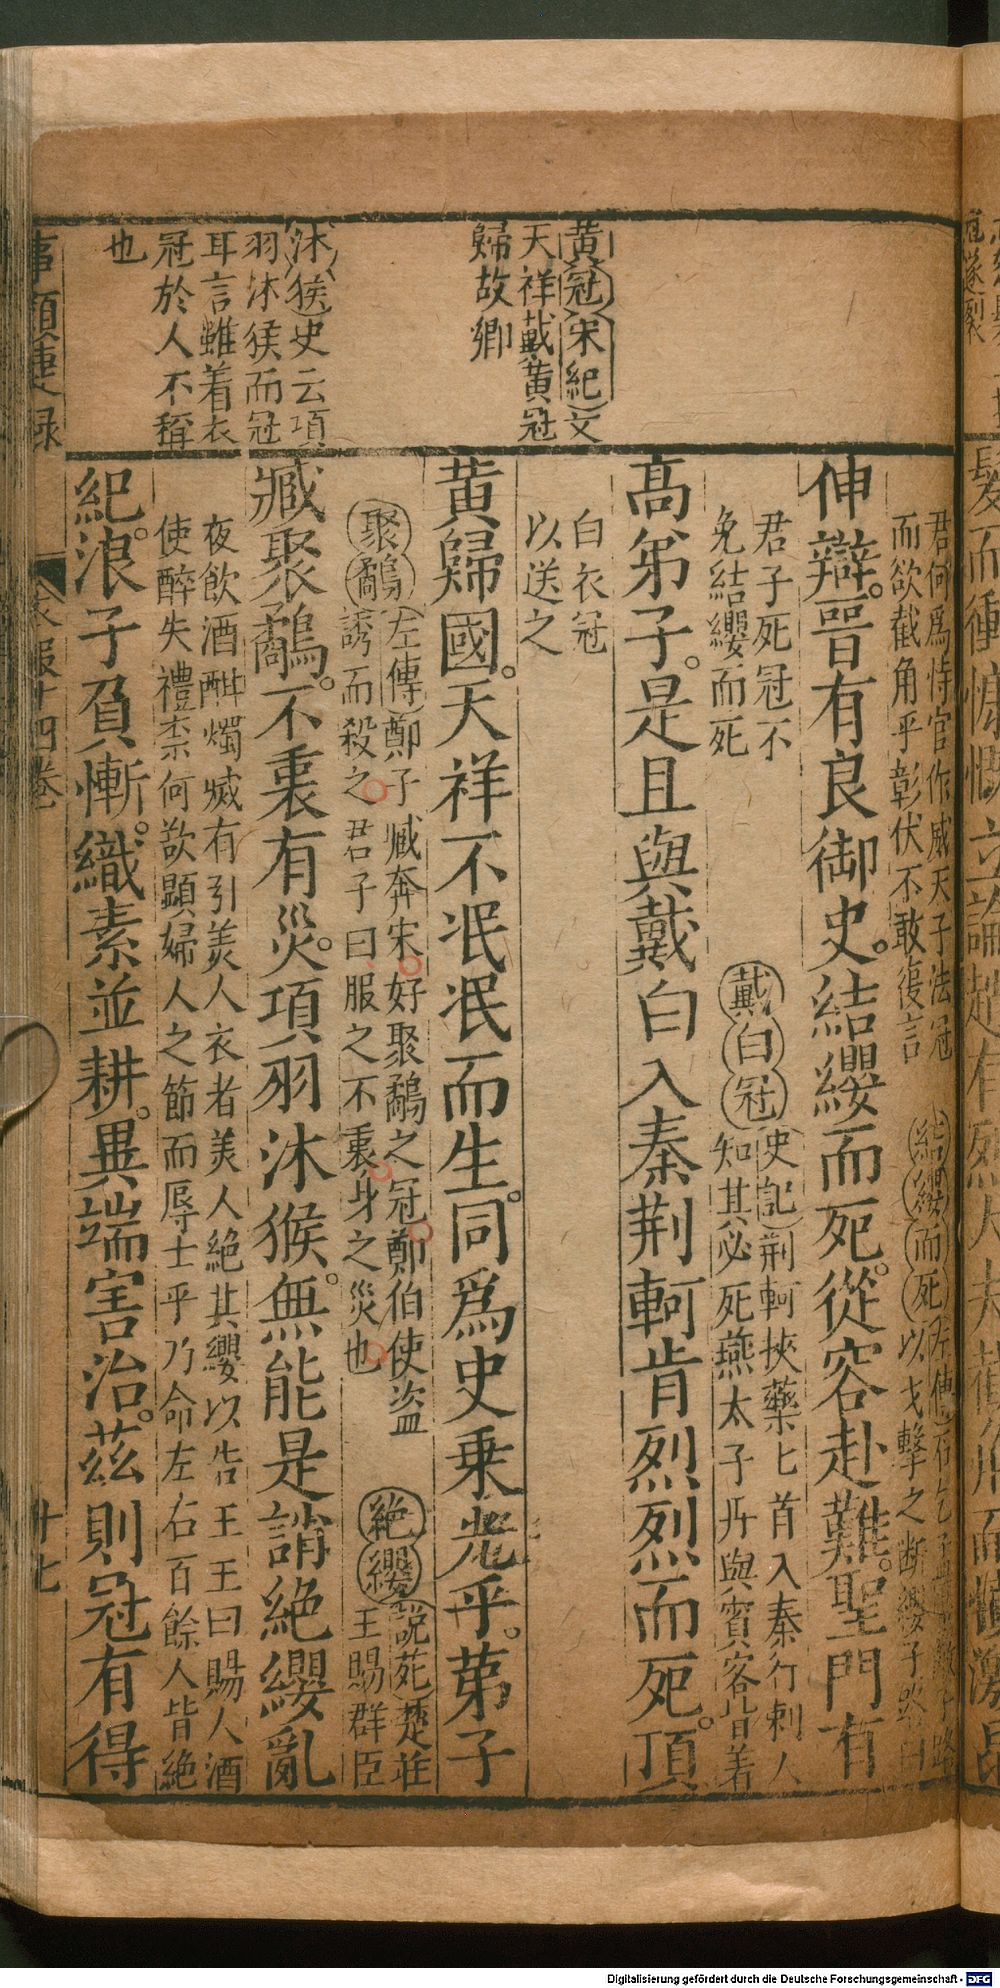 黃冠宋紀文
天祥戴黃冠
歸故鄉
沐猴史云項
羽沐猴而冠
耳言雖着衣
冠於人不稱
也
君何爲恃官作威天子法冠
而欲截角乎彰伏不敢復言
結纓而死左傳石乞
以戈擊之断纓子路曰
伸辯。晋有良御史。結纓而死。從容赴難。聖門有
君子死冠不
免結纓而死
戴白冠史記荆軻挾藥匕首入秦行刺人
知其必死燕太子丹與賓客皆着
高弟子。是且與戴白入秦荆軻肯烈烈而死。頂
白衣冠
以送之
黄歸國。天祥不泯泯而生。同爲史乗光乎。第子
聚鷸左傳鄭子臧奔宋好聚鷸之冠鄭伯使盗
誘而殺之君子曰服之不衷身之災也
絶纓説苑楚莊
王賜群臣
臧聚鷸。不衷有災。項羽沐猴。無能是誚絶纓亂
夜飲酒酣燭滅有引美人衣者美人絶其纓以告王王曰賜人酒
使醉失禮柰何欲顕婦人之節而辱士乎乃命左右百餘人皆絶
紀。浪子負慚。織素並耕。異端害治。茲則冠有得
事類捷録
衣服十四巻
十七
Digitalisierung gefördert durch die Deutsche Forschungsgemeinschaft - DFG